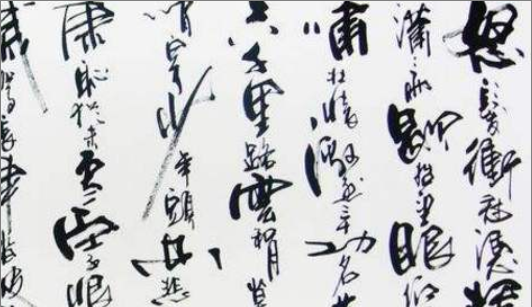 怒髮衝冠憑欄
瀟々雨歇抬望眼仰
嘯壯懷激烈三十功名
八千里路雲和月莫
白了少年頭空悲
康恥猶未雪臣子恨
駕長車踏破